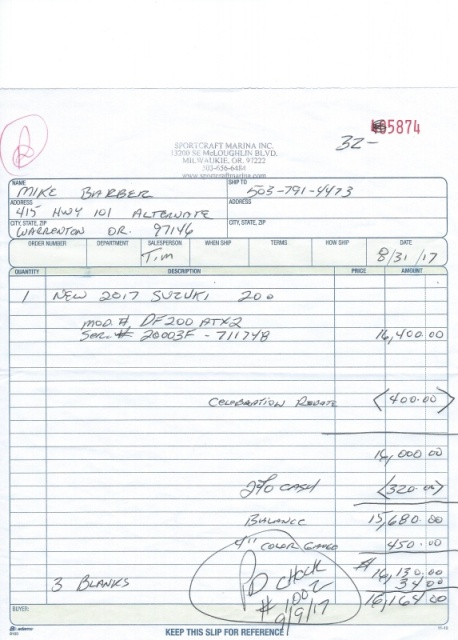 5874
32-
SPORTCRAFT MARINA INC.
13209 SE McLOUGHLIN BLVD.
MILWAUKIE, OR. 97222
503-656-6484
www.sportcraftmarina.com
NAME
MIKE BARBER
SHIP TO
503-791-4473
ADDRESS
415 HWY 101 ALTERNATE
ADDRESS
CITY, STATE, ZIP
WARRENTON OR. 97146
CITY, STATE, ZIP
ORDER NUMBER DEPARTMENT SALESPERSON WHEN SHIP TERMS HOW SHIP DATE
TIM 8/31/17
QUANTITY DESCRIPTION PRICE AMOUNT
1 NEW 2017 SUZUKI 200
MOD # DF200 ATX2
SER # 20003F - 711748 16,400.00
CELEBRATION REBATE <400.00>
16,000 00
2% CASH <320.00>
BALANCE 15,680.00
4" COLOR GAUGE 450.00
16,130.00
3 BLANKS 34 00
16,164 00
PD CHECK
# 1002
9/9/17
BUYER:
adams
KEEP THIS SLIP FOR REFERENCE